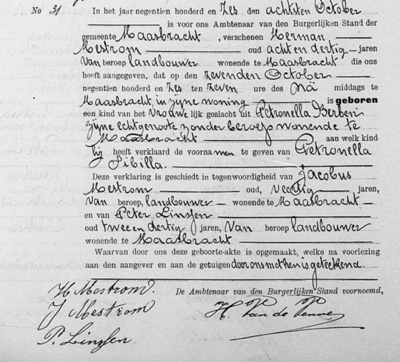 No 31
In het jaar negentien honderd en zes den achtsten October
is voor ons Ambtenaar van den Burgerlijken Stand der
gemeente Maasbracht, verschenen Herman
Mestrom oud acht en dertig jaren
van beroep landbouwer wonende te Maasbracht die ons
heeft aangegeven, dat op den zevenden October
negentien honderd en zes ten zeven ure des na middags te
Maasbracht in zijne woning is geboren
een kind van het vrouwelijk geslacht uit Petronella Gerben
zijne echtgenoote zonder beroep wonende te
Maasbracht aan welk kind
hij heeft verklaard de voornamen te geven van Petronella
Sibilla.
Deze verklaring is geschiedt in tegenwoordigheid van Jacobus
Mestrom oud, veertig jaren,
van beroep landbouwer wonende te Maasbracht
en van Peter Linssen
oud twee en dertig jaren, van beroep landbouwer
wonende te Maasbracht
Waarvan door ons deze geboorte-akte is opgemaakt, welke na voorlezing
aan den aangever en aan de getuigen door ons met hen is geteekend.
De Ambtenaar van den Burgerlijken Stand voornoemd,
H Mestrom.
J Mestrom
P. Linssen
H. van de Venne